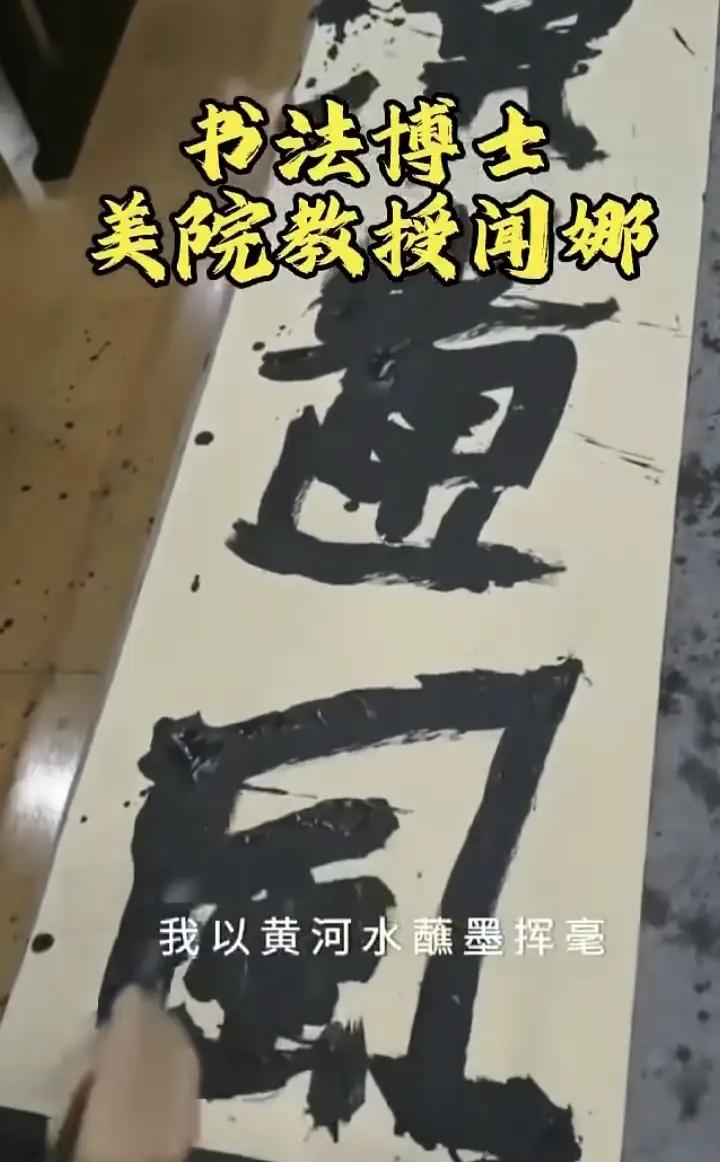 书法博士
美院教授闻娜
風
我以黄河水蘸墨挥毫